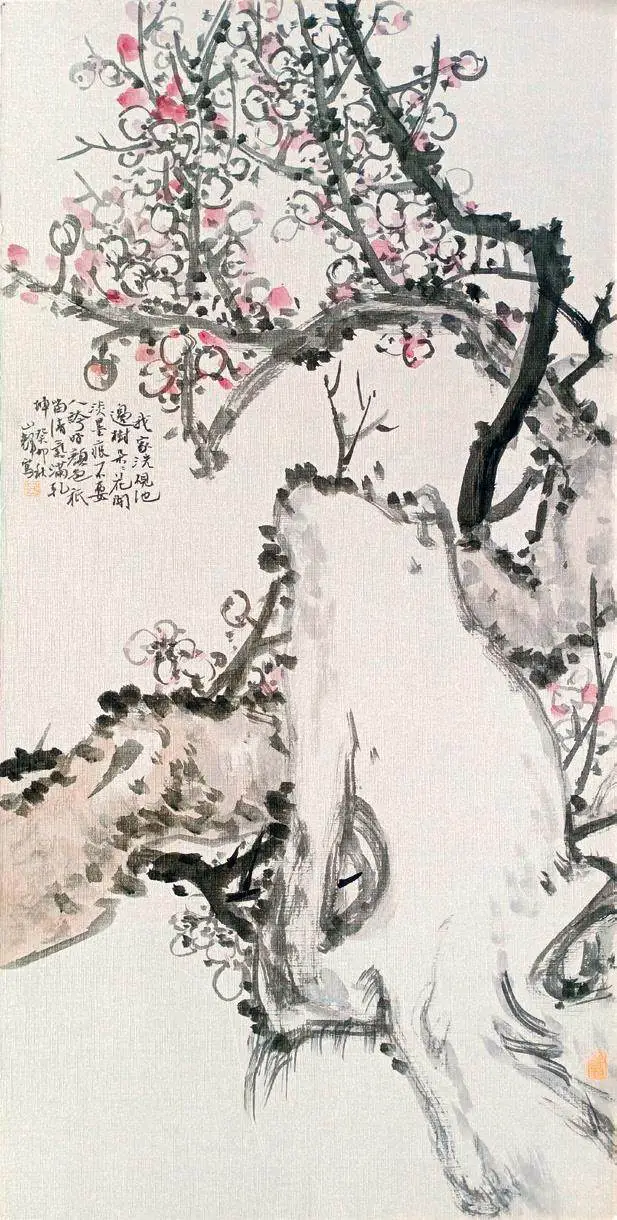 我家洗硯池
邊樹朵々花開
淡墨痕不要
人誇好顏色祇
留清氣滿乾
坤 癸卯秋
山 寫